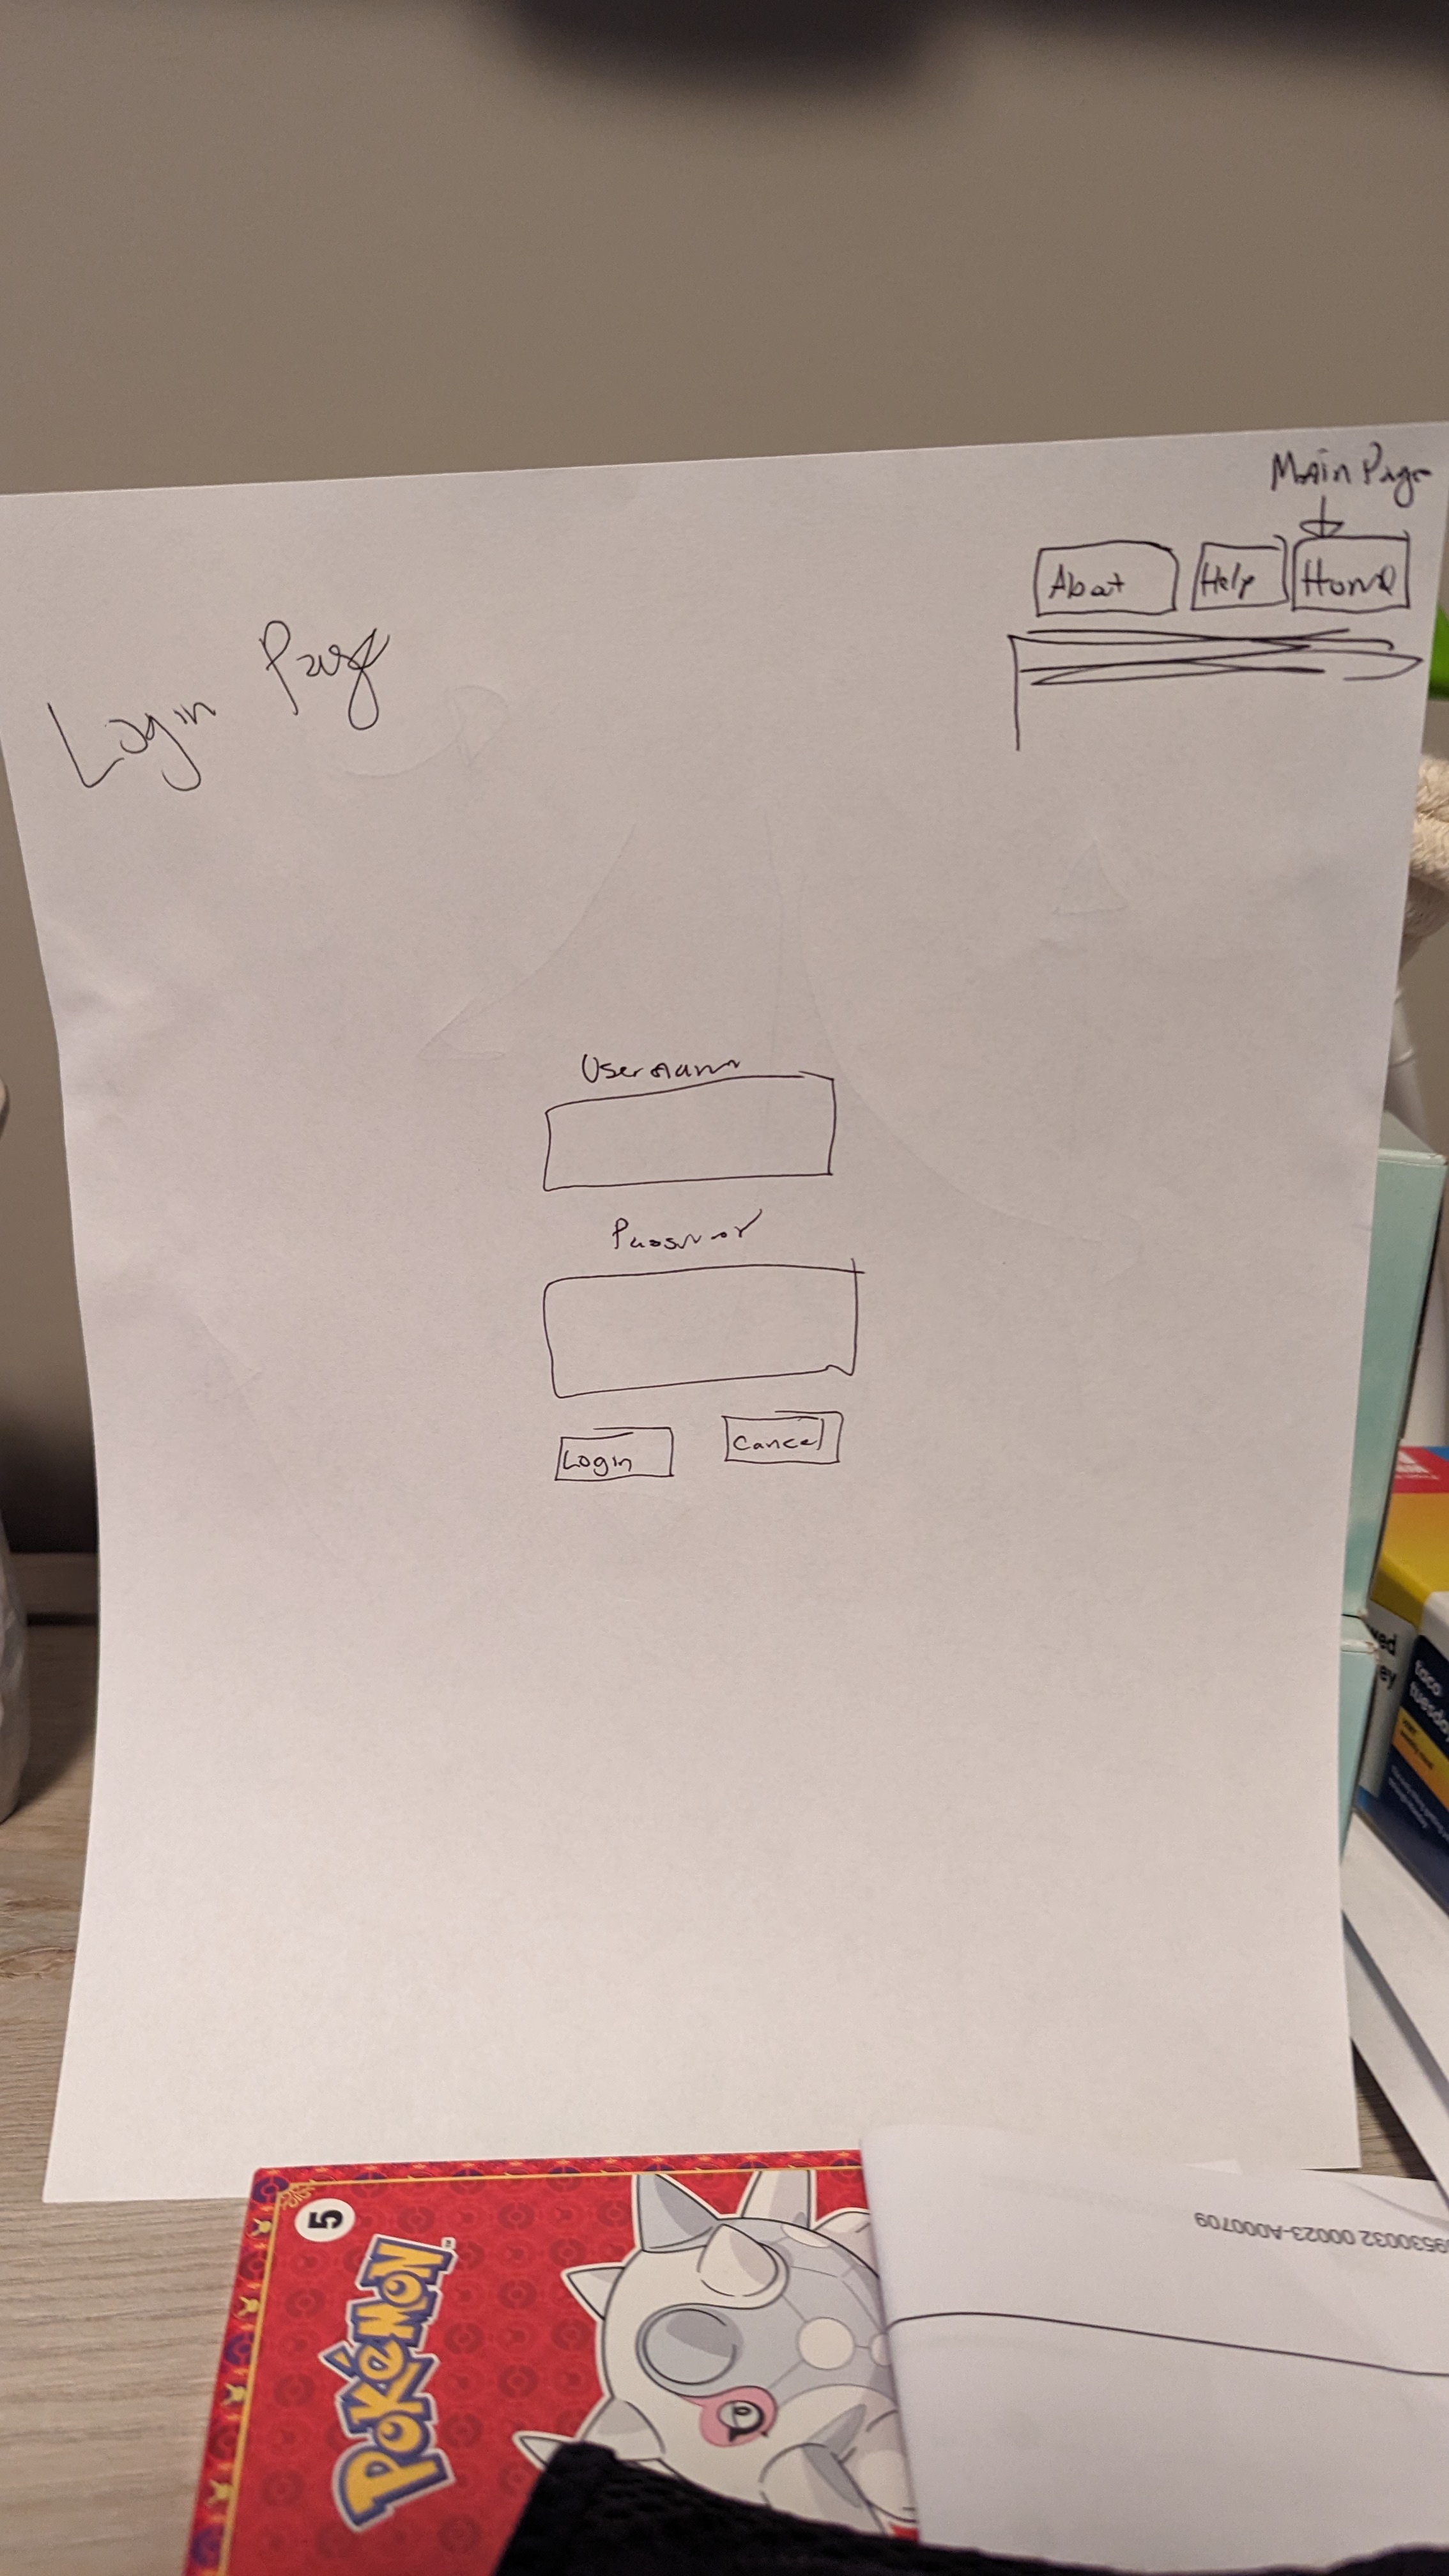 Main Page
About Help Home
Login Page
Username
Password
Login Cancel
taco
5
POKéMON
09530032 00023-A000709